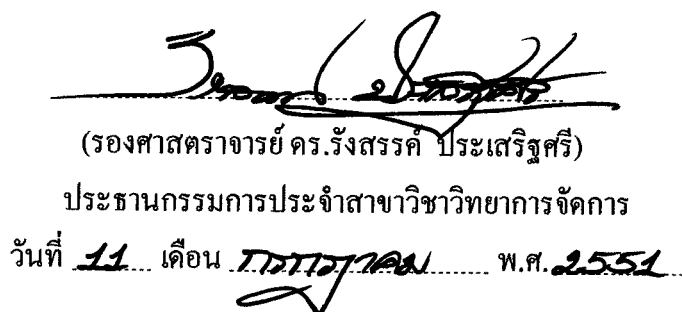 (รองศาสตราจารย์ ดร.รังสรรค์ ประเสริฐศรี)
ประธานกรรมการประจำสาขาวิชาวิทยาการจัดการ
วันที่ 11 เดือน กรกฎาคม พ.ศ. 2551